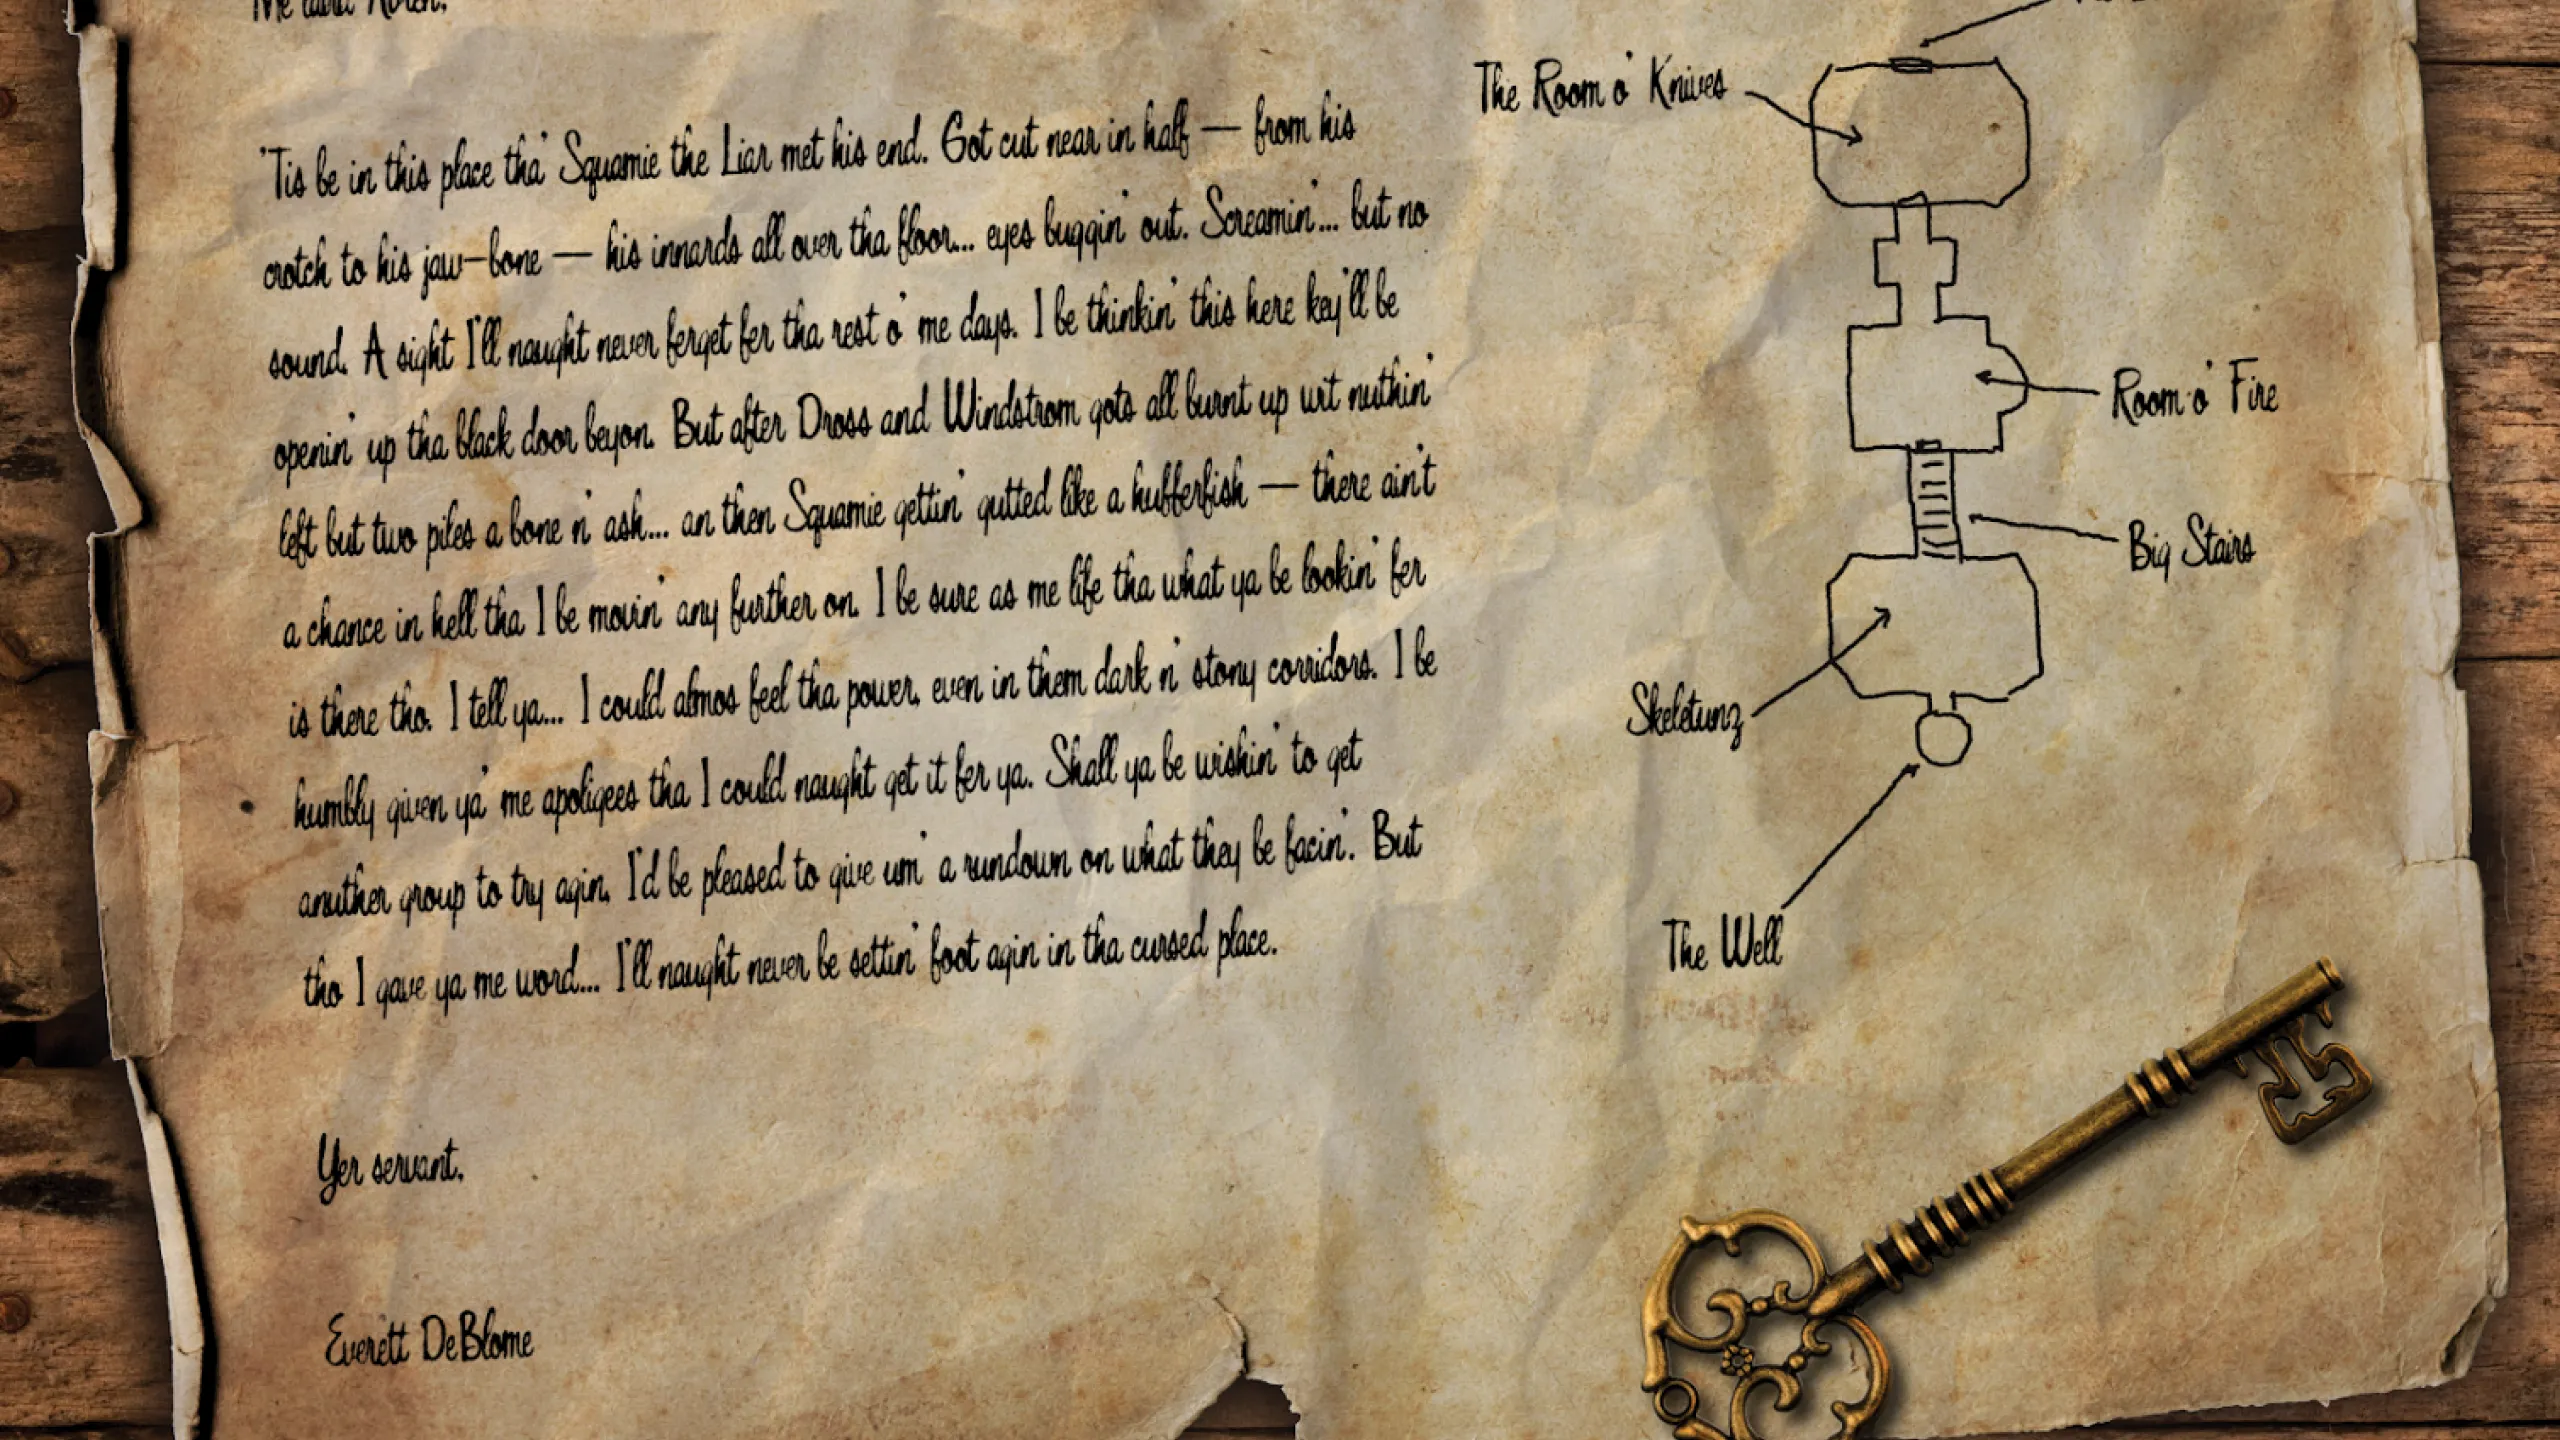 'Tis be in this place tha' Squamie the Liar met his end. Got cut near in half — from his
crotch to his jaw-bone — his innards all over tha floor... eyes buggin' out. Screamin'... but no
sound. A sight I'll naught never ferget fer tha rest o' me days. I be thinkin' this here key'll be
openin' up tha black door beyon. But after Dross and Windstrom gots all burnt up wit nuthin'
left but two piles a bone n' ash... an then Squamie gettin' gutted like a hufferfish — there ain't
a chance in hell tha I be movin' any further on. I be sure as me life tha what ya be lookin' fer
is there tho. I tell ya... I could almos feel tha power, even in them dark n' stony corridors. I be
humbly given ya' me apoligees tha I could naught get it fer ya. Shall ya be wishin' to get
anuther group to try agin, I'd be pleased to give um' a rundown on what they be facin'. But
tho I gave ya me word... I'll naught never be settin' foot agin in tha cursed place.
Yer servant,
Everett DeBlome
The Room o' Knives
Room o' Fire
Big Stairs
Skeletunz
The Well